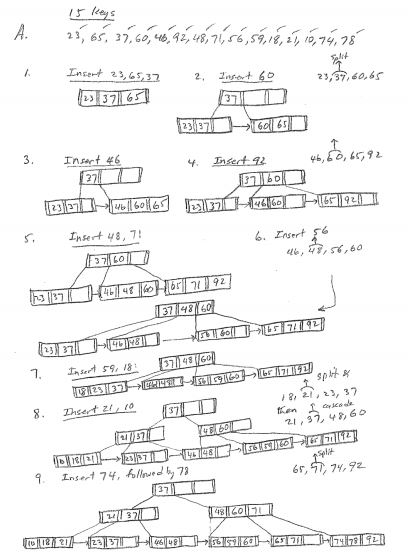 15 keys
A. 23, 65, 37, 60, 46, 92, 48, 71, 56, 59, 18, 21, 10, 74, 78
1. Insert 23, 65, 37
23 37 65
2. Insert 60
split
23, 37, 60, 65
37
23 37 60 65
3. Insert 46
37
23 37 46 60 65
4. Insert 92
46, 60, 65, 92
37 60
23 37 46 60 65 92
5. Insert 48, 71
37 60
23 37 46 48 60 65 71 92
6. Insert 56
46, 48, 56, 60
37 48 60
23 37 46 48 56 60 65 71 92
7. Insert 59, 18:
37 48 60
18 23 37 46 48 56 59 60 65 71 92
8. Insert 21, 10
split &
18, 21, 23, 37
then cascade
21, 37, 48, 60
37
21 37 48 60
10 18 21 23 37 46 48 56 59 60 65 71 92
9. Insert 74, followed by 78
split
65, 71, 74, 92
37
21 37 48 60 71
10 18 21 23 37 46 48 56 59 60 65 71 74 78 92